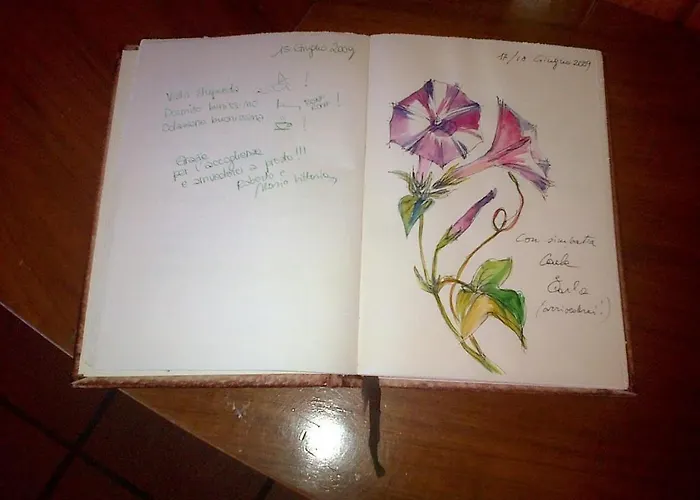 13 Giugno 2009
Vista stupenda !
Dormito benissimo !
Colazione buonissima !
Grazie
per l'accoglienza
e arrivederci a presto!!!
Roberto e
17/18 Giugno 2009
Con simpatia
Carla
(arrivederci!)